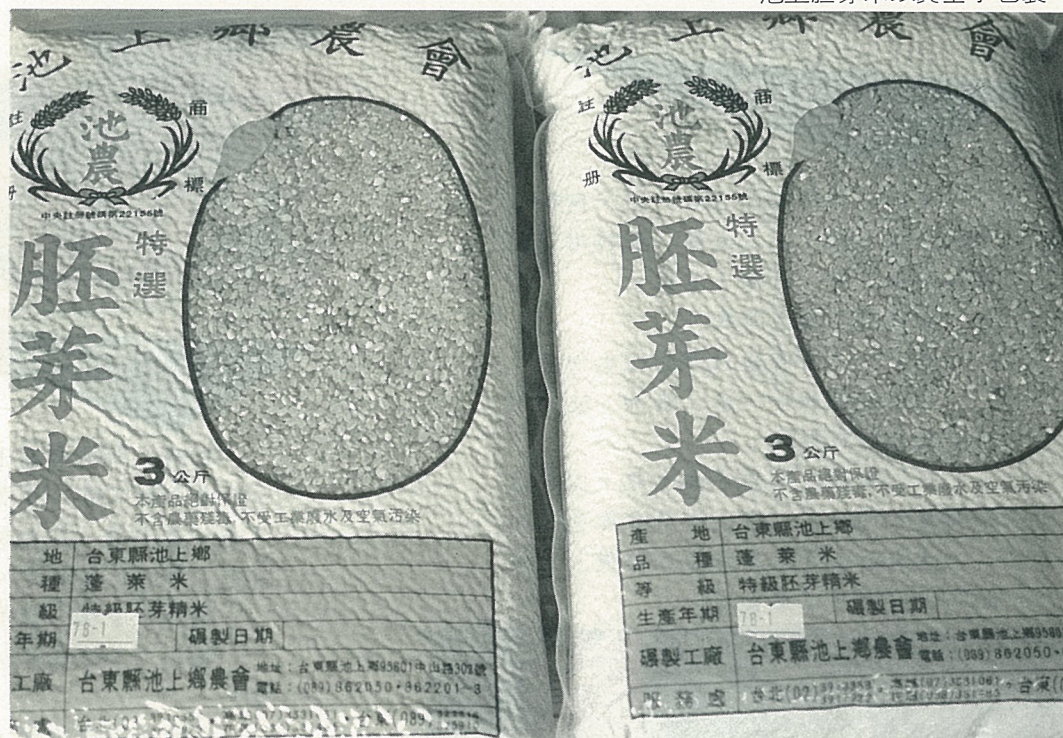 池上鄉農會
註冊 商標
池農
中央註冊號碼第22156號
特選
胚芽米
3公斤
本產品絕對保證
不含農藥殘毒,不受工業廢水及空氣汚染
地 台東縣池上鄉
種 蓬萊米
級 特級胚芽精米
年期 78-1 碾製日期
工廠 台東縣池上鄉農會 地址:台東縣池上鄉95801中山路302號
電話:(089)862050・862201-3
台北(02)
台東(089)
池上鄉農會
註冊 商標
池農
中央註冊號碼第22156號
特選
胚芽米
3公斤
本產品絕對保證
不含農藥殘毒,不受工業廢水及空氣汚染
產地 台東縣池上鄉
品種 蓬萊米
等級 特級胚芽精米
生產年期 78-1 碾製日期
碾製工廠 台東縣池上鄉農會 地址:台東縣池上鄉958
電話:(089)862050・
服務處 台北(02) 台東